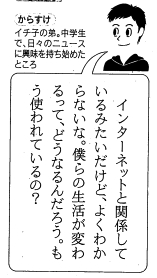 からすけ
イチ子の弟。中学生
で、日々のニュース
に興味を持ち始めた
ところ
インターネットと関係して
いるみたいだけど、よくわか
らないな。僕らの生活が変わ
るって、どうなるんだろう。も
う使われているの?